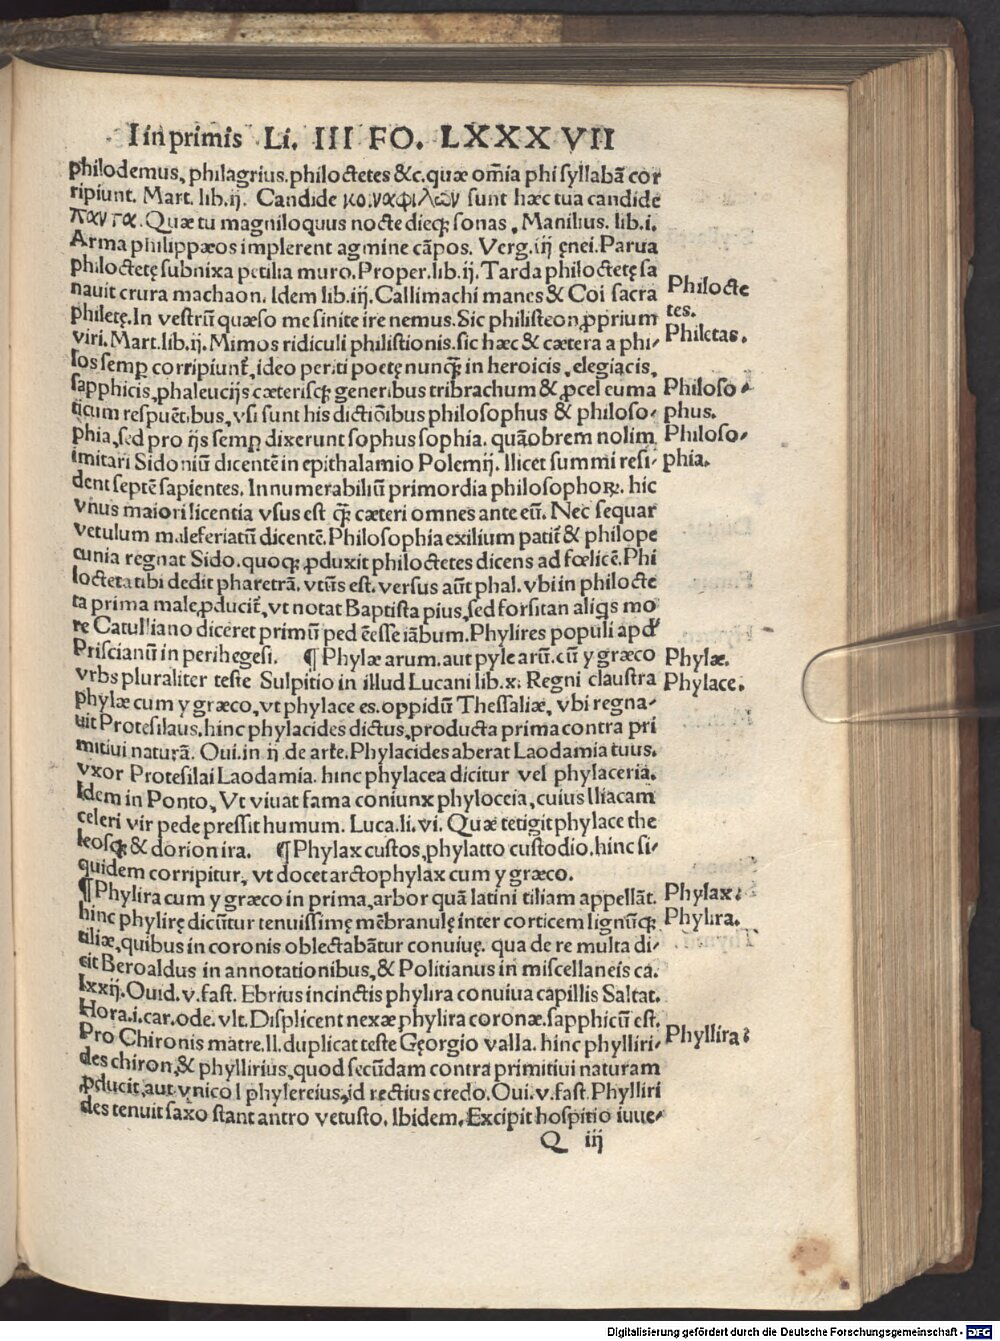 I in primis Li. III FO. LXXXVII
philodemus, philagrius. philoctetes &c. quæ om̄ia phi syllabā cor
ripiunt. Mart. lib. ij. Candide κοιναφιλων sunt hæc tua candide
παντα. Quæ tu magniloquus nocte dieq; sonas. Manilius. lib. i.
Arma philippæos implerent agmine cāpos. Verg. iij ęnei. Parua
philoctetę subnixa petilia muro. Proper. lib. ij. Tarda philoctetę sa
nauit crura machaon. Idem lib. iij. Callimachi manes & Coi sacra
philetę. In vestrū quæso me sinite ire nemus. Sic philisteon ꝓprium
viri. Mart. lib. ij. Mimos ridiculi philistionis. sic hæc & cætera a phi/
los semꝑ corripiunt᷑, ideo periti poetę nunq̄; in heroicis, elegiacis,
sapphicis, phaleucijs cæterisq; generibus tribrachum & ꝓceleuma
ticum respuētibus, vsi sunt his dictiōibus philosophus & philoso/
phia, sed pro ijs semꝑ dixerunt sophus sophia. quāobrem nolim
imitari Sidoniū dicentē in epithalamio Polemij. Ilicet summi resi/
dent septē sapientes. Innumerabiliū primordia philosophoꝝ. hic
vnus maiori licentia vsus est q̄; cæteri omnes ante eū. Nec sequar
vetulum maleferiatū dicentē. Philosophia exilium patit᷑ & philope
cunia regnat Sido. quoq; ꝓduxit philoctetes dicens ad fœlicē. Phi
locteta tibi dedit pharetrā. vtūs est. versus aūt phal. vbi in philocte
ta prima male ꝓducit᷑, vt notat Baptista pius, sed forsitan aliqs mo
re Catulliano diceret primū pedē esse iābum. Phylires populi apd᷑
Priscianū in perihegesi. ¶ Phylæ arum. aut pyle arū. cū y græco
vrbs pluraliter teste Sulpitio in illud Lucani lib. x. Regni claustra
phylæ cum y græco, vt phylace es. oppidū Thessaliæ, vbi regna/
uit Protesilaus. hinc phylacides dictus, producta prima contra pri
mitiui naturā. Oui. in ij de arte. Phylacides aberat Laodamia tuus.
vxor Protesilai Laodamia. hinc phylacea dicitur vel phylaceria.
Idem in Ponto, Vt viuat fama coniunx phyloceia, cuius Iliacam
celeri vir pede pressit humum. Luca. li. vi. Quæ tetigit phylace the
leosq; & dorion ira. ¶ Phylax custos, phylatto custodio, hinc si/
quidem corripitur, vt docet arctophylax cum y græco.
¶ Phylira cum y græco in prima, arbor quā latini tiliam appellāt.
hinc phylirę dicūtur tenuissimę mēbranulę inter corticem lignūq;
tiliæ, quibus in coronis oblectabātur conuiuę. qua de re multa di/
cit Beroaldus in annotationibus, & Politianus in miscellaneis ca.
lxxij. Ouid. v. fast. Ebrius incinctis phylira conuiua capillis Saltat.
Hora. i. car. ode. vlt. Displicent nexæ phylira coronæ. sapphicū est.
Pro Chironis matre. ll. duplicat teste Gęorgio valla. hinc phylliri/
des chiron, & phyllirius, quod secūdam contra primitiui naturam
ꝓducit, aut vnico l phylereius, id rectius credo. Oui. v. fast. Phylliri
des tenuit saxo stant antro vetusto. Ibidem. Excipit hospitio iuue/
Q iij
Philocte
tes.
Philetas.
Philoso/
phus.
Philoso/
phia.
Phylæ.
Phylace.
Phylax.
Phylira.
Phyllira.
Digitalisierung gefördert durch die Deutsche Forschungsgemeinschaft - DFG